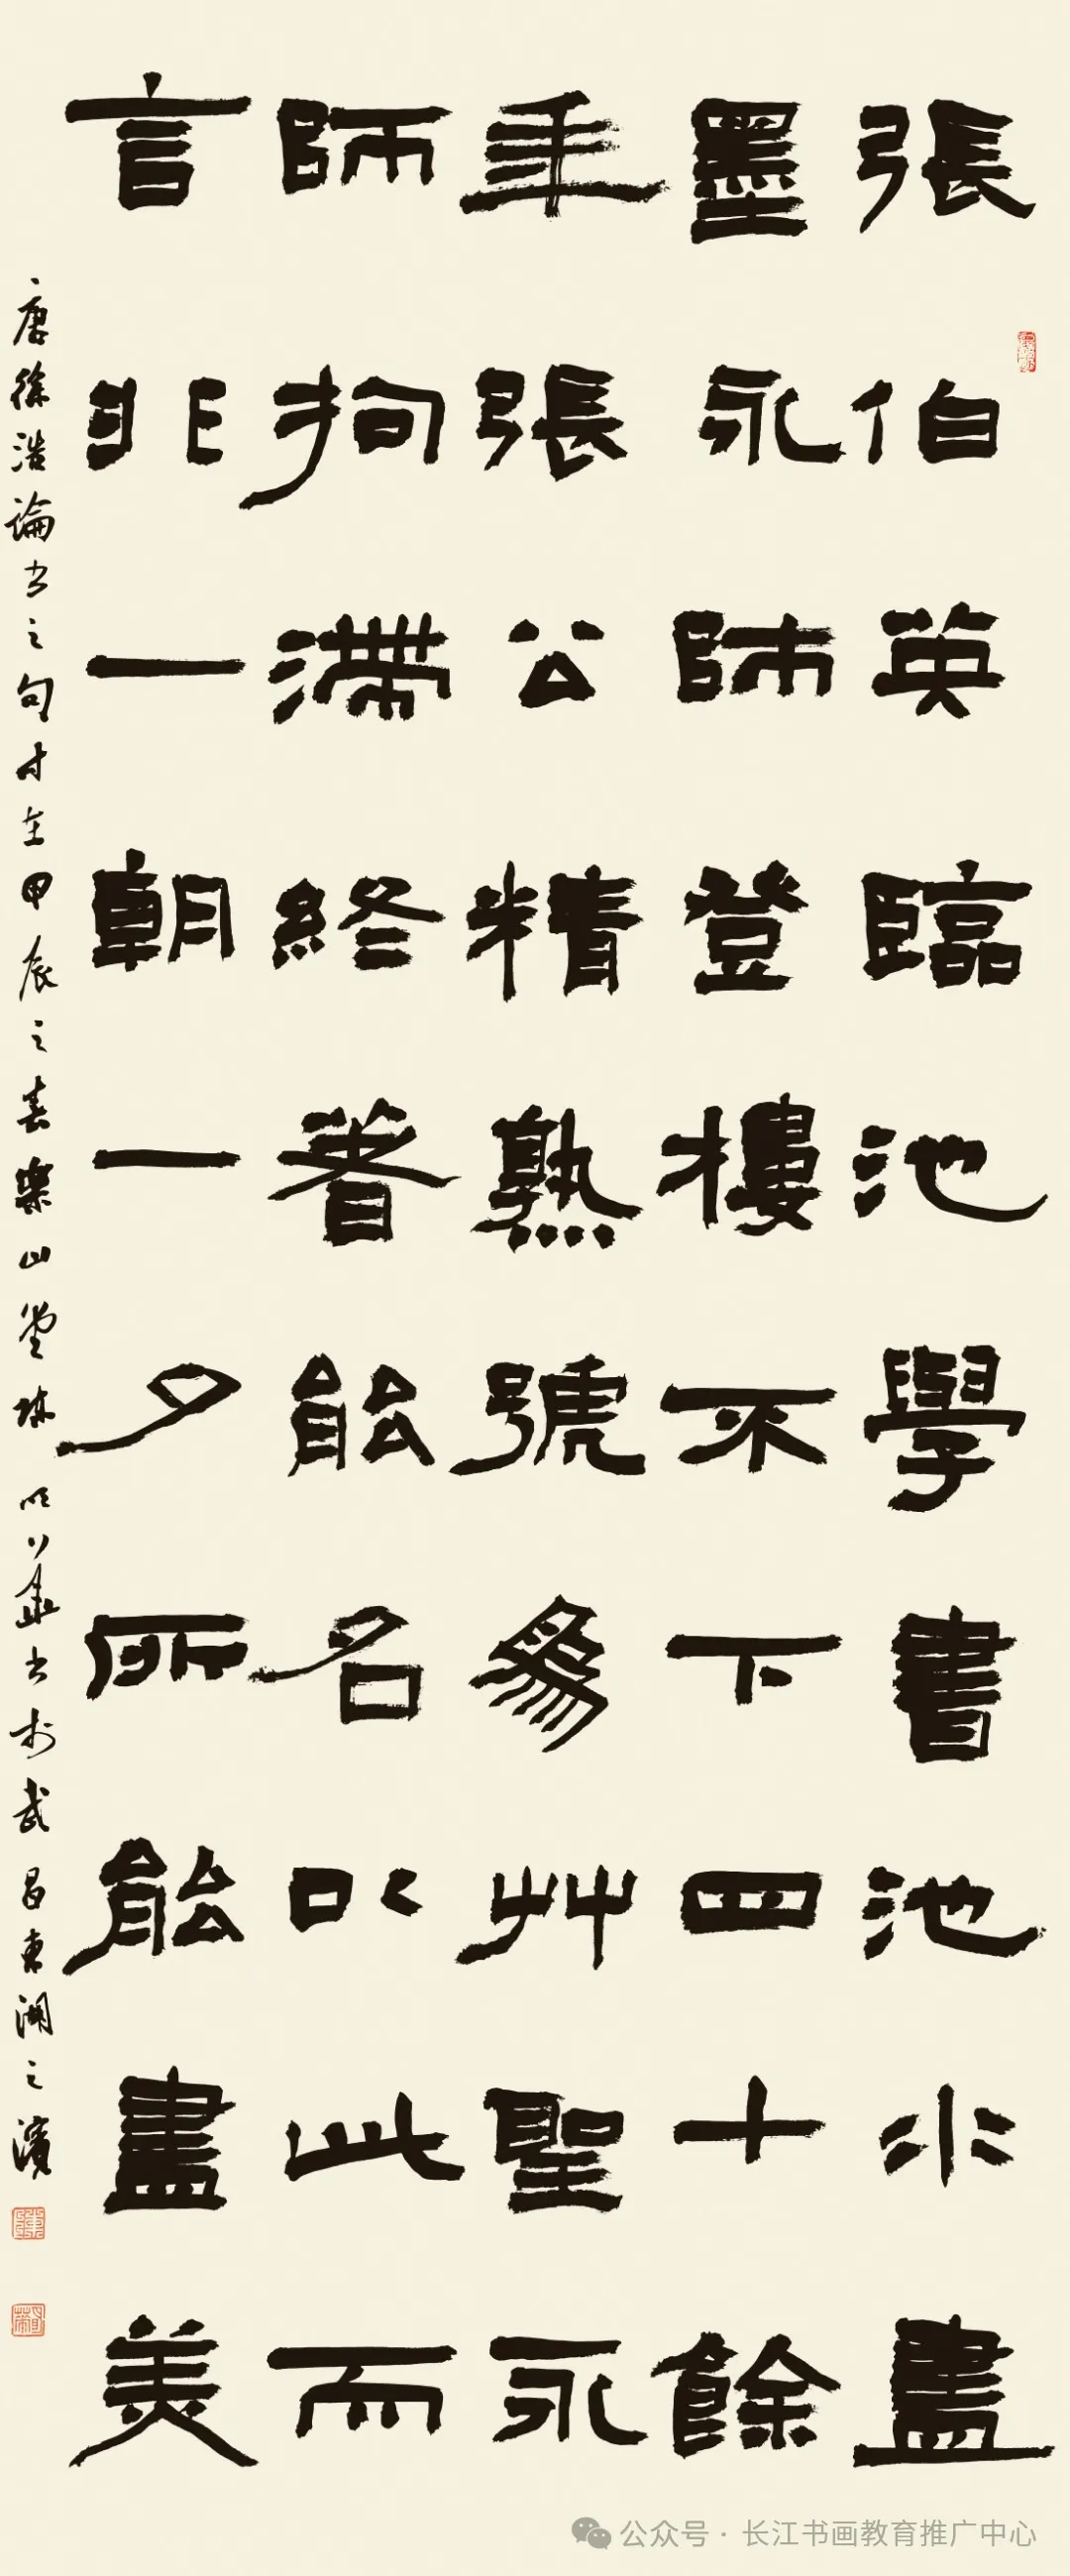 張伯英臨池學書池水盡
墨永師登樓不下四十餘
年張公精熟號為艸聖永
師拘滯終著能名以此而
言非一朝一夕所能盡美
唐徐浩論書之句時在甲辰之春樂山堂 明公 書於武昌東湖之濱
公众号 · 长江书画教育推广中心